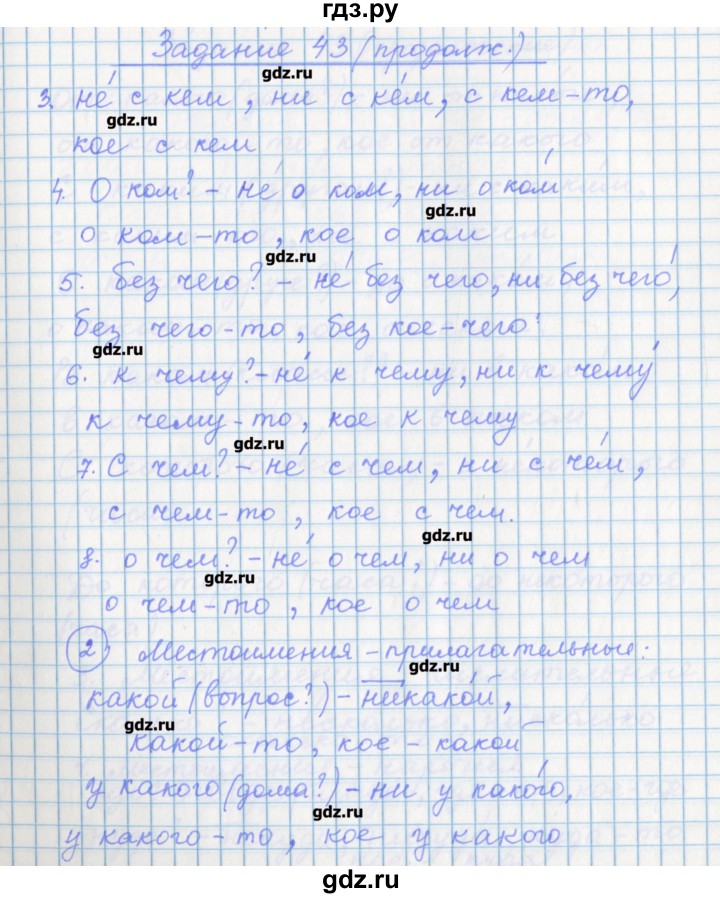 гдз.ру
Задание 43 (продолж.)
gdz.ru
3. не́ с кем, ни с ке́м, с кем-то,
gdz.ru
кое с кем
4. О ком? - не́ о ком, ни о ко́м
gdz.ru
о ком-то, кое о ком
gdz.ru
5. без чего? - не́ без чего, ни без чего́,
без чего-то, без кое-чего
gdz.ru
6. к чему? - не́ к чему, ни к чему́
к чему-то, кое к чему
gdz.ru
7. С чем? - не́ с чем, ни с че́м,
с чем-то, кое с чем.
gdz.ru
8. о чем? - не́ о чем, ни о чем
gdz.ru
о чем-то, кое о чем
2) Местоимения - прилагательные:
gdz.ru
какой (вопрос?) - никако́й,
gdz.ru
какой-то, кое-какой
у какого (дома?) - ни у како́го,
gdz.ru
у какого-то, кое у какого
gdz.ru